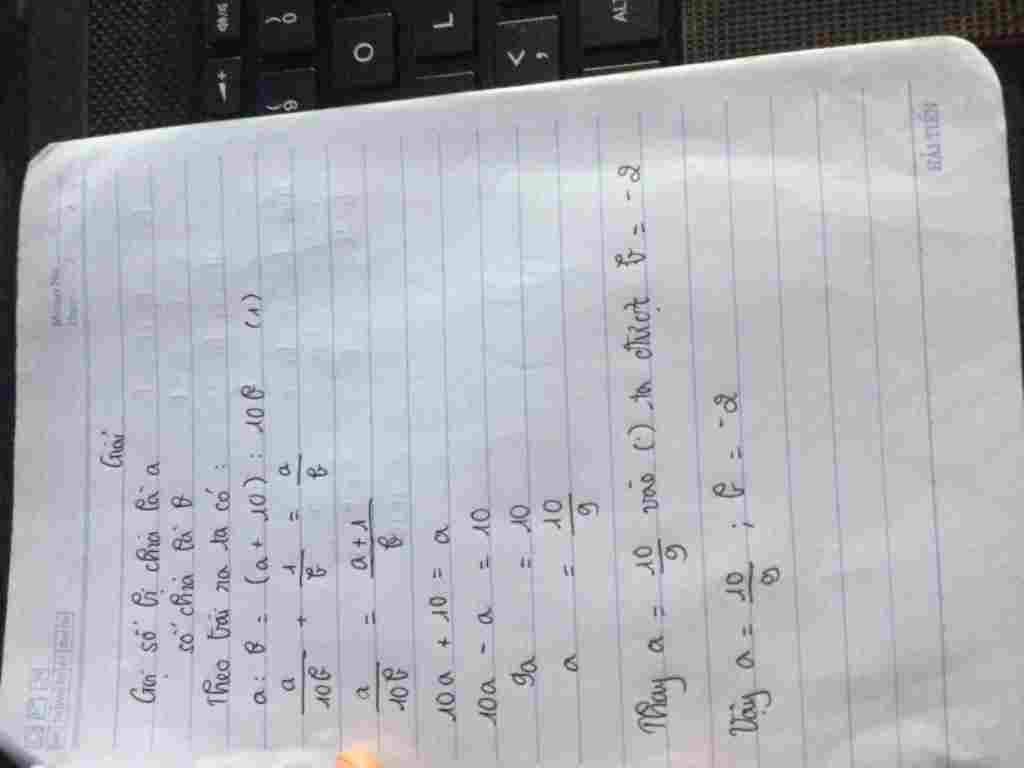 Giải
Gọi số bị chia là a
số chia là b
Theo bài ra ta có:
a : b = (a + 10) : 10b (1)
a/10b + 1/b = a/b
a/10b = a+1/b
10a + 10 = a
10a - a = 10
9a = 10
a = 10/9
Thay a = 10/9 vào (1) ta được b = -2
Vậy a = 10/9 ; b = -2
HẢI TIẾN